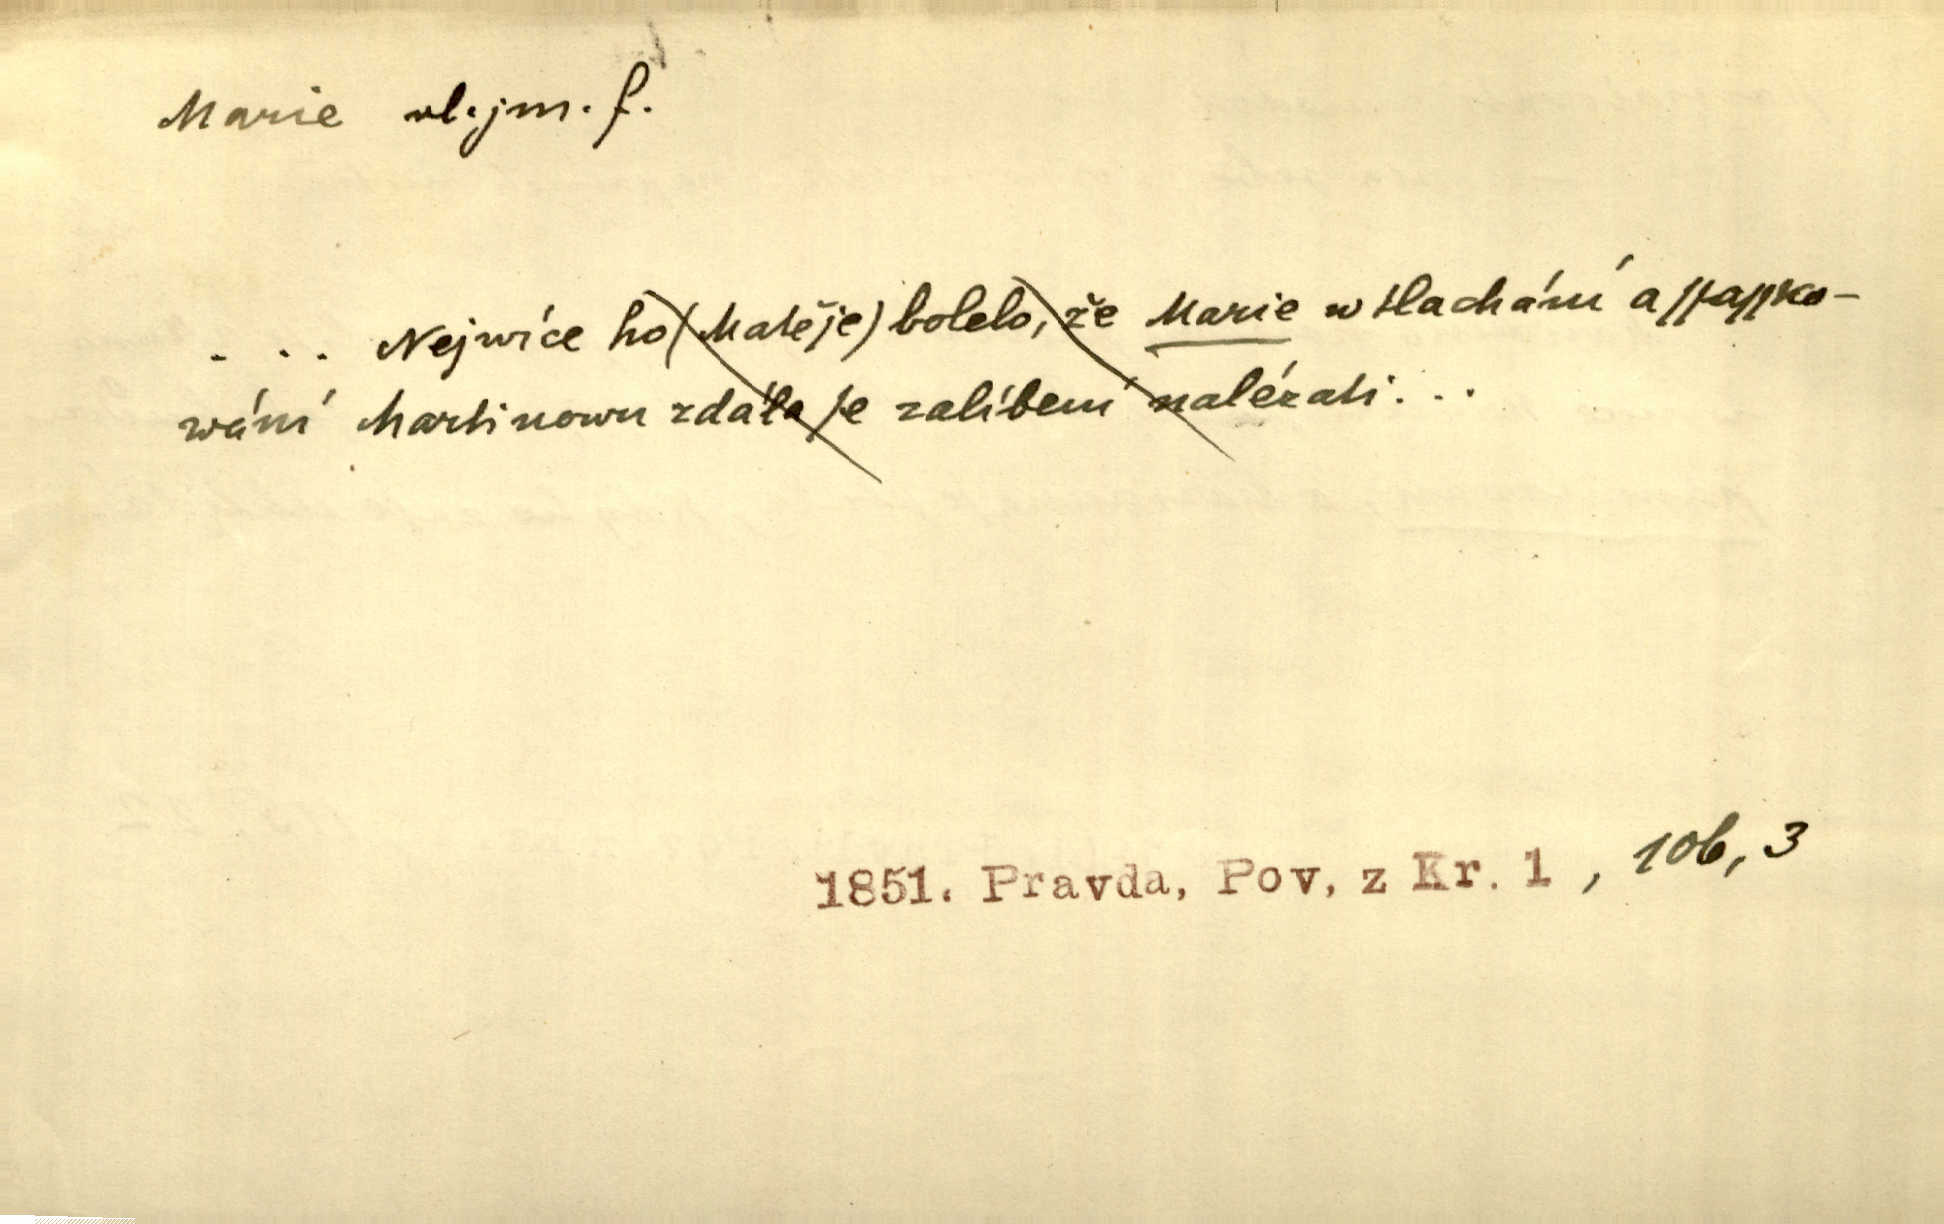 Marie vl. jm. f.
. . . Nejwíce ho (Matěje) bolelo, že Marie w tlachání a ſſaſſko-
wání Martinowu zdála ſe zalíbení nalézati . . .
1851. Pravda, Pov. z Kr. 1 , 106, 3